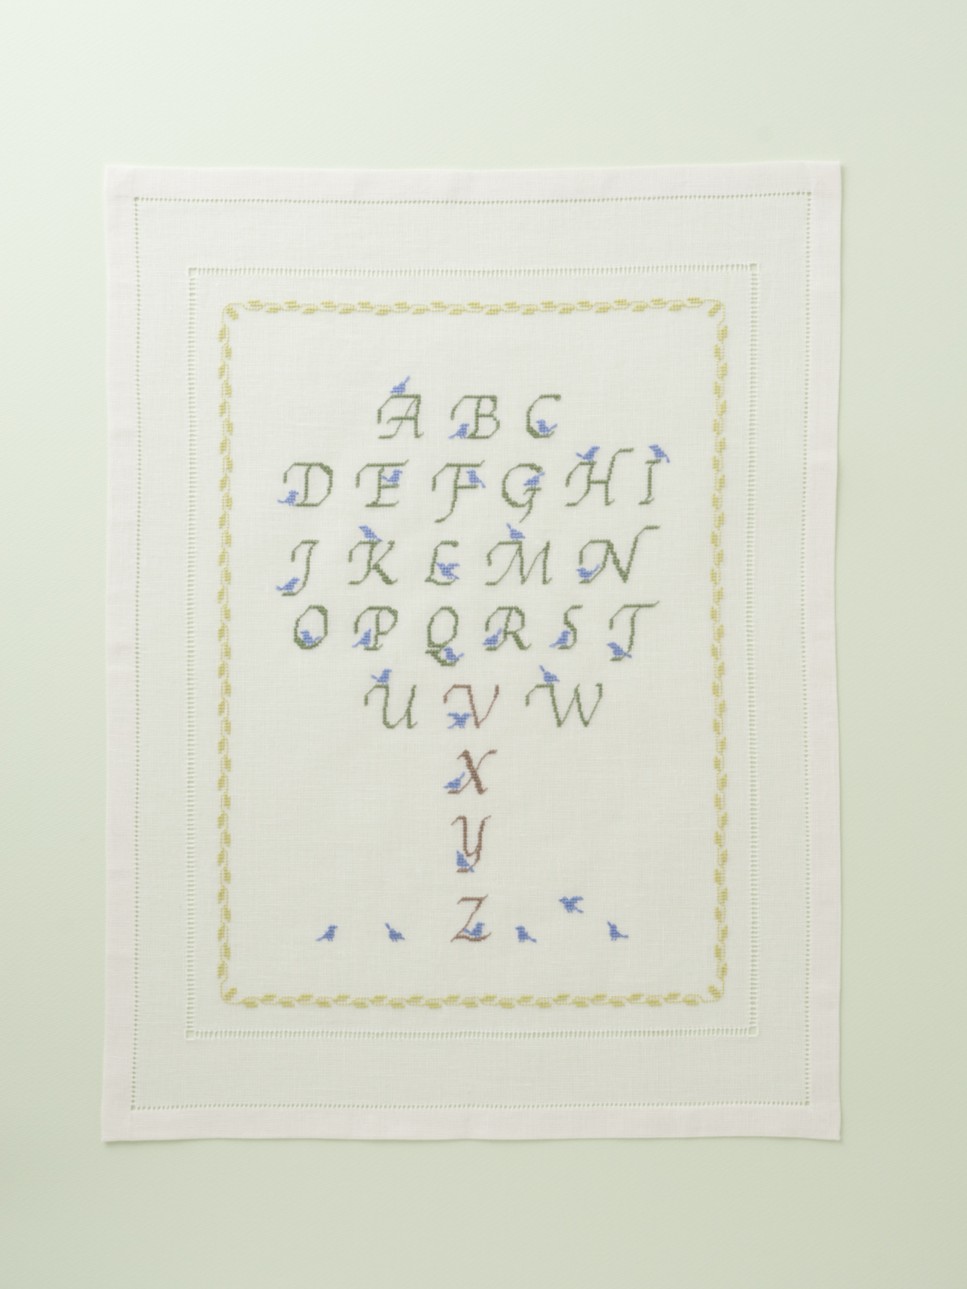 A B C
D E F G H I
J K L M N
O P Q R S T
U V W
X
Y
Z